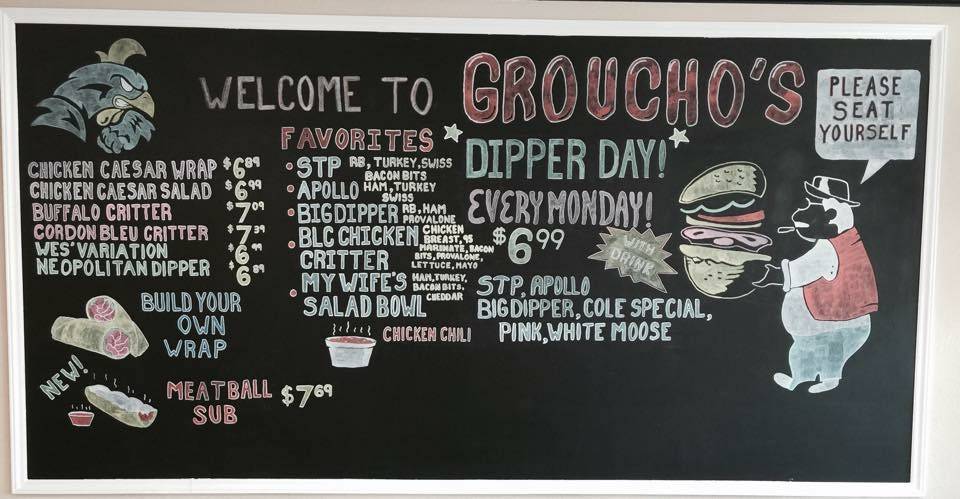 WELCOME TO GROUCHO'S
PLEASE
SEAT
YOURSELF
CHICKEN CAESAR WRAP $6.89
CHICKEN CAESAR SALAD $6.99
BUFFALO CRITTER $7.09
CORDON BLEU CRITTER $7.39
WES' VARIATION $6.99
NEOPOLITAN DIPPER $6.89
BUILD YOUR
OWN
WRAP
NEW!
MEATBALL $7.69
SUB
FAVORITES
• STP RB, TURKEY, SWISS
BACON BITS
• APOLLO HAM, TURKEY
SWISS
• BIG DIPPER RB, HAM
PROVALONE
• BLC CHICKEN CRITTER CHICKEN
BREAST, 95
MARINATE, BACON
BITS, PROVALONE,
LETTUCE, MAYO
• MY WIFE'S SALAD BOWL HAM, TURKEY,
BACON BITS,
CHEDDAR
CHICKEN CHILI
DIPPER DAY!
EVERY MONDAY!
$6.99
WITH
DRINK
STP, APOLLO
BIG DIPPER, COLE SPECIAL,
PINK, WHITE MOOSE